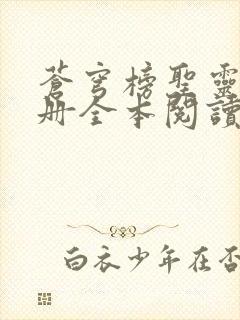 蒼穹榜聖靈
册全本閱讀
白衣少年在否